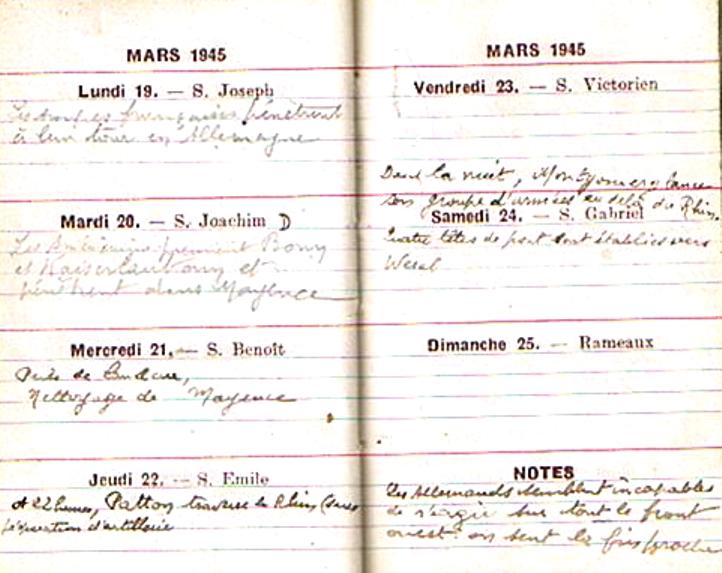 MARS 1945
Lundi 19. — S. Joseph
Les troupes françaises pénètrent
à leur tour en Allemagne
Mardi 20. — S. Joachim D
Les Américains prennent Bonn
et Kaiserlautern et
pénètrent dans Mayence
Mercredi 21. — S. Benoît
Prise de
Nettoyage de Mayence
Jeudi 22. — S. Emile
A 22 heures, Patton traverse le Rhin (sans
préparation d'artillerie
MARS 1945
Vendredi 23. — S. Victorien
Dans la nuit, Montgomery lance
son groupe d'armées au delà du Rhin.
Samedi 24. — S. Gabriel
Quatre têtes de pont sont établies vers
Wesel
Dimanche 25. — Rameaux
NOTES
Les Allemands semblent incapables
de réagir sur tout le front
ouest. on sent la fin proche